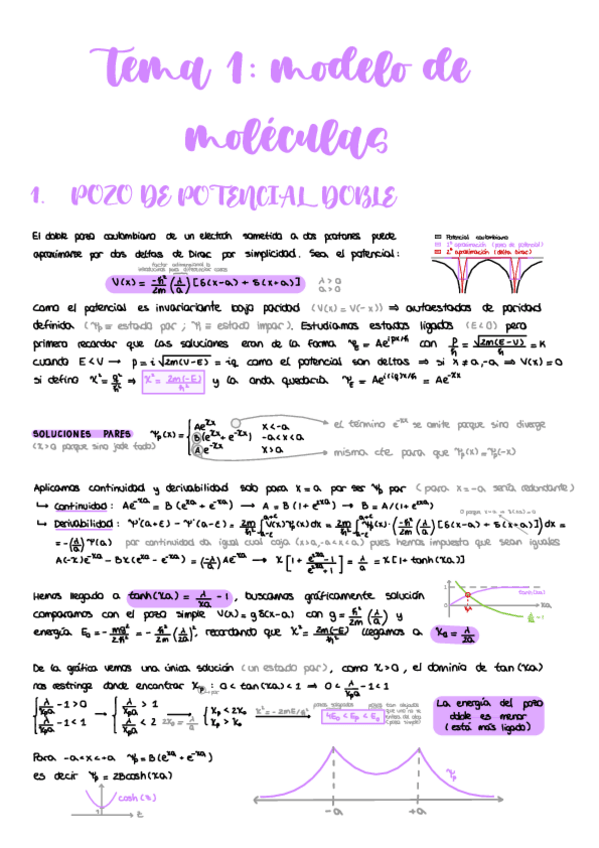 Tema 1: modelo de
moléculas
1. POZO DE POTENCIAL DOBLE
El doble pozo coulombiano de un electrón sometido a dos protones puede
aproximarse por dos deltas de Dirac por simplicidad. Sea el potencial:
Potencial coulombiano
1ª aproximación (pozo de potencial)
2ª aproximación (delta Dirac)
factor adimensional λ
introducimos para diferenciar casos
V(x) = -ℏ²/2m (λ/a) [δ(x-a) + δ(x+a)] λ > 0
a > 0
Como el potencial es invariante bajo paridad (V(x) = V(-x)) ⇒ autoestados de paridad
definida (Ψp ≡ estado par ; Ψi ≡ estado impar). Estudiamos estados ligados (E<0) pero
primero recordar que las soluciones eran de la forma ΨE = Ae^(ipx/ℏ) con p/ℏ = √(2m(E-V))/ℏ = K
cuando E < V → p = i√(2m(V-E)) = iq como el potencial son deltas ⇒ si x ≠ a,-a ⇒ V(x) = 0
si defino χ² = q²/ℏ² ⇒ χ² = 2m(-E)/ℏ² y la onda quedaría ΨE = Ae^(i(iq)x/ℏ) = Ae^(-χx)
SOLUCIONES PARES
(χ>0 porque sino jode todo)
Ψp(x) = { Ae^(χx) x < -a
B(e^(χx) + e^(-χx)) -a < x < a
Ae^(-χx) x > a
el término e^(-χx) se omite porque sino diverge
misma cte para que Ψp(x) = Ψp(-x)
Aplicamos continuidad y derivabilidad solo para x = a por ser Ψp par (para x = -a sería redundante)
↳ Continuidad: Ae^(-χa) = B(e^(χa) + e^(-χa)) → A = B(1 + e^(2χa)) → B = A/(1 + e^(2χa))
↳ Derivabilidad: Ψ'(a+ε) - Ψ'(a-ε) = 2m/ℏ² ∫ V(x)Ψ(x)dx = 2m/ℏ² ∫ Ψ(x)·(-ℏ²/2m (λ/a) [δ(x-a) + δ(x+a)]) dx =
= -(λ/a) Ψ(a) por continuidad da igual cual coja (x>a,-a<x<a) pues hemos impuesto que sean iguales
A(-χ)e^(-χa) - Bχ(e^(χa) - e^(-χa)) = (-λ/a) Ae^(-χa) → χ[1 + (e^(2χa)-1)/(e^(2χa)+1)] = λ/a = χ[1 + tanh(χa)]
Hemos llegado a tanh(χa) = λ/χa - 1, buscamos gráficamente solución
comparamos con el pozo simple V(x) = gδ(x-a) con g = ℏ²/2m (λ/a) y
energía E₀ = -mg²/2ℏ² = -ℏ²/2m (λ/2a)², recordando que χ² = 2m(-E)/ℏ² llegamos a χ₀ = λ/2a
1
tanh(χa)
χa
λ/χa - 1
De la gráfica vemos una única solución (un estado par), como χ>0, el dominio de tan(χa)
nos restringe donde encontrar χp : 0 < tan(χa) < 1 ⇒ 0 < λ/χpa - 1 < 1
{ λ/χpa - 1 > 0
λ/χpa - 1 < 1
→ { λ/χpa > 1
λ/χpa < 2
2χ₀ = λ/a
→ { χp < 2χ₀
χp > χ₀
χ² = -2mE/ℏ²
4E₀ < Ep < E₀
La energía del pozo
doble es menor
(está más ligado)
Para -a<x<a Ψp = B(e^(χx) + e^(-χx))
es decir Ψp = 2Bcosh(χx)
cosh(z)
1
z
Ψp
-a
+a